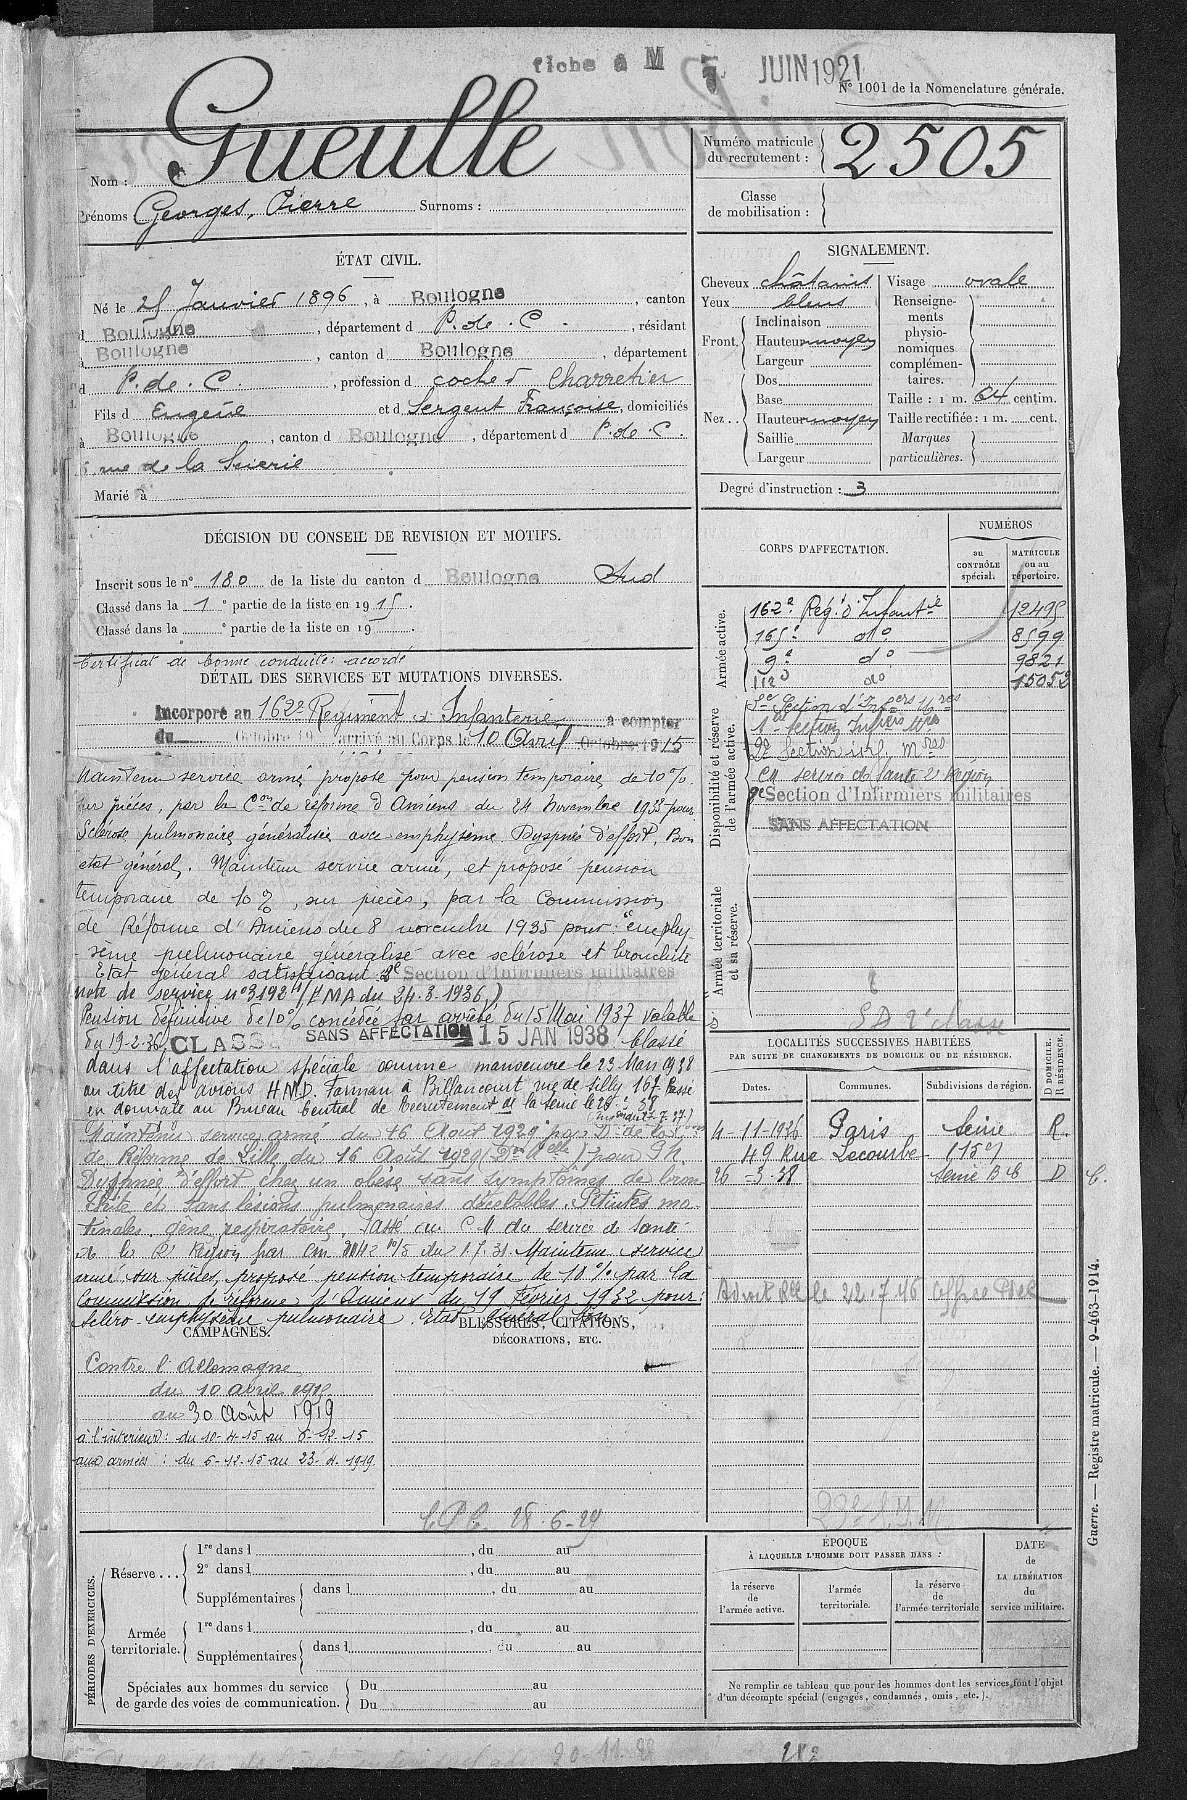 fiche à M 5 JUIN 1921
N° 1001 de la Nomenclature générale.
Nom : Gueulle
Prénoms Georges, Pierre Surnoms :
Numéro matricule du recrutement : 2505
Classe de mobilisation :
ÉTAT CIVIL.
Né le 25 Janvier 1896, à Boulogne, canton
d Boulogne, département d P. de. C., résidant
à Boulogne, canton d Boulogne, département
d P. de. C., profession d cocher charretier
Fils d Eugène et d Sergent Françoise, domiciliés
à Boulogne, canton d Boulogne, département d P. de C.
rue de la
Marié à
SIGNALEMENT.
Cheveux châtains
Yeux bleus
Front. Inclinaison
Hauteur moyen
Largeur
Nez .. Dos
Base
Hauteur moyen
Saillie
Largeur
Visage ovale
Renseignements physionomiques complémentaires.
Taille : 1 m. 64 centim.
Taille rectifiée : 1 m. cent.
Marques particulières.
Degré d'instruction : 3
DÉCISION DU CONSEIL DE REVISION ET MOTIFS.
Inscrit sous le n° 180 de la liste du canton d Boulogne Sud
Classé dans la 1° partie de la liste en 1915.
Classé dans la ° partie de la liste en 19 .
Certificat de bonne conduite : accordé
DÉTAIL DES SERVICES ET MUTATIONS DIVERSES.
Incorporé au 162e Régiment d'Infanterie à compter
du Octobre 19 arrivé au Corps le 10 Avril Octobre 1915
Maintenu service armé proposé pour pension temporaire de 10 %
sur pièces, par la Con de réforme d'Amiens du 24 Novembre 1933 pour
Sclérose pulmonaire généralisée avec emphysème. Dyspnée d'effort. Bon
état général. Maintenu service armé, et proposé pension
temporaire de 10 %, sur pièces, par la Commission
de Réforme d'Amiens du 8 novembre 1935 pour "emphy-
sème pulmonaire généralisé avec sclérose et bronchite
Etat général satisfaisant 2e Section d'Infirmiers militaires
note de service n° 3192 /EMA du 24.3.1936)
Pension définitive de 10 % concédée par arrêté du 15 Mai 1937 valable
du 19-2-36 CLASS SANS AFFECTATION 15 JAN 1938 Classé
dans l'affectation spéciale comme manoeuvre le 23 Mars 1938
au titre des avions H.M.D. Farman à Billancourt rue de Silly 167 Passé
en domicile au Bureau Central de Recrutement de la Seine le 26.3.38
Maintenu service armé du 16 Aout 1929 par Don de la Con
de Réforme de Lille du 16 Août 1929 pour
Dyspnée d'effort chez un obèse sans symptomes de bron-
chite et sans lésions pulmonaires décelables. Pituites ma-
tinales, gêne respiratoire. Passé au C.M du service de santé
de la 2e Région par 1.7.31. Maintenu service
armé sur pièces, proposé pension temporaire de 10 % par la
Commission de réforme d'Amiens du 19 Février 1932 pour :
Scléro emphysème pulmonaire. Etat général bon
CORPS D'AFFECTATION.
NUMÉROS
au CONTRÔLE spécial.
MATRICULE ou au répertoire.
Armée active.
162e Rég. d'Infantie 12495
165e do 8599
9e do 9821
112e do 15052
Disponibilité et réserve de l'armée active.
1re Section Infiers Mres
2e Section infi. Mres
CM service de santé 2e Région
2e Section d'Infirmiers militaires
SANS AFFECTATION
Armée territoriale et sa réserve.
S A 2e classe
LOCALITÉS SUCCESSIVES HABITÉES
PAR SUITE DE CHANGEMENTS DE DOMICILE OU DE RÉSIDENCE.
Dates. Communes. Subdivisions de région. D DOMICILE. R RÉSIDENCE.
4-11-1926 Paris Seine R.
49 Rue Lecourbe (15e)
26-3-38 Seine B C D
22.7.46
CAMPAGNES.
Contre l'Allemagne
du 10 avril 1915
au 30 Août 1919
à l'intérieur : du 10-4-15 au 5-12-15
aux armées : du 6-12-15 au 23.4.1919
BLESSURES, CITATIONS,
DÉCORATIONS, ETC.
28-6-29
PÉRIODES D'EXERCICES.
Réserve ... 1re dans l , du au
2e dans l , du au
Supplémentaires dans l , du au
Armée territoriale. 1re dans l , du au
Supplémentaires dans l du au
Spéciales aux hommes du service Du au
de garde des voies de communication. Du au
ÉPOQUE
À LAQUELLE L'HOMME DOIT PASSER DANS :
la réserve de l'armée active.
l'armée territoriale.
la réserve de l'armée territoriale
DATE de LA LIBÉRATION du service militaire.
Ne remplir ce tableau que pour les hommes dont les services font l'objet
d'un décompte spécial (engagés, condamnés, omis, etc.).
Guerre. — Registre matricule. — 9-463-1914.
20-11-28
282